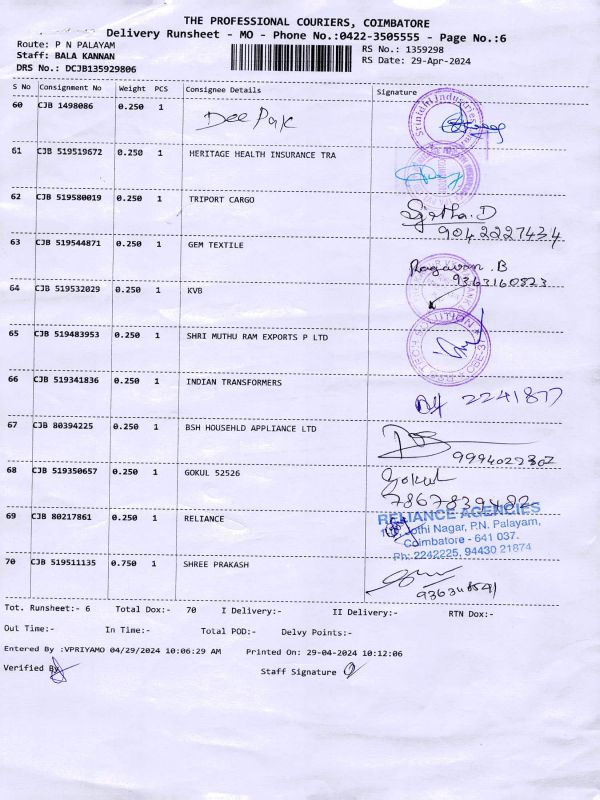 THE PROFESSIONAL COURIERS, COIMBATORE
Delivery Runsheet - MO - Phone No.:0422-3505555 - Page No.:6
Route: P N PALAYAM RS No.: 1359298
Staff: BALA KANNAN RS Date: 29-Apr-2024
DRS No.: DCJB135929806
S No Consignment No Weight PCS Consignee Details Signature
60 CJB 1498086 0.250 1 DeePak
Srinidhi Industries
61 CJB 519519672 0.250 1 HERITAGE HEALTH INSURANCE TRA
62 CJB 519580019 0.250 1 TRIPORT CARGO
9042227434
63 CJB 519544871 0.250 1 GEM TEXTILE Ragavan.B
9363160823
64 CJB 519532029 0.250 1 KVB
65 CJB 519483953 0.250 1 SHRI MUTHU RAM EXPORTS P LTD
66 CJB 519341836 0.250 1 INDIAN TRANSFORMERS 2241877
67 CJB 80394225 0.250 1 BSH HOUSEHLD APPLIANCE LTD
68 CJB 519350657 0.250 1 GOKUL 52526 Gokul
69 CJB 80217861 0.250 1 RELIANCE RELIANCE AGENCIES
Jothi Nagar, P.N. Palayam,
Coimbatore - 641 037.
Ph: 2242225, 94430 21874
70 CJB 519511135 0.750 1 SHREE PRAKASH
Tot. Runsheet:- 6 Total Dox:- 70 I Delivery:- II Delivery:- RTN Dox:-
Out Time:- In Time:- Total POD:- Delvy Points:-
Entered By :VPRIYAMO 04/29/2024 10:06:29 AM Printed On: 29-04-2024 10:12:06
Verified By Staff Signature